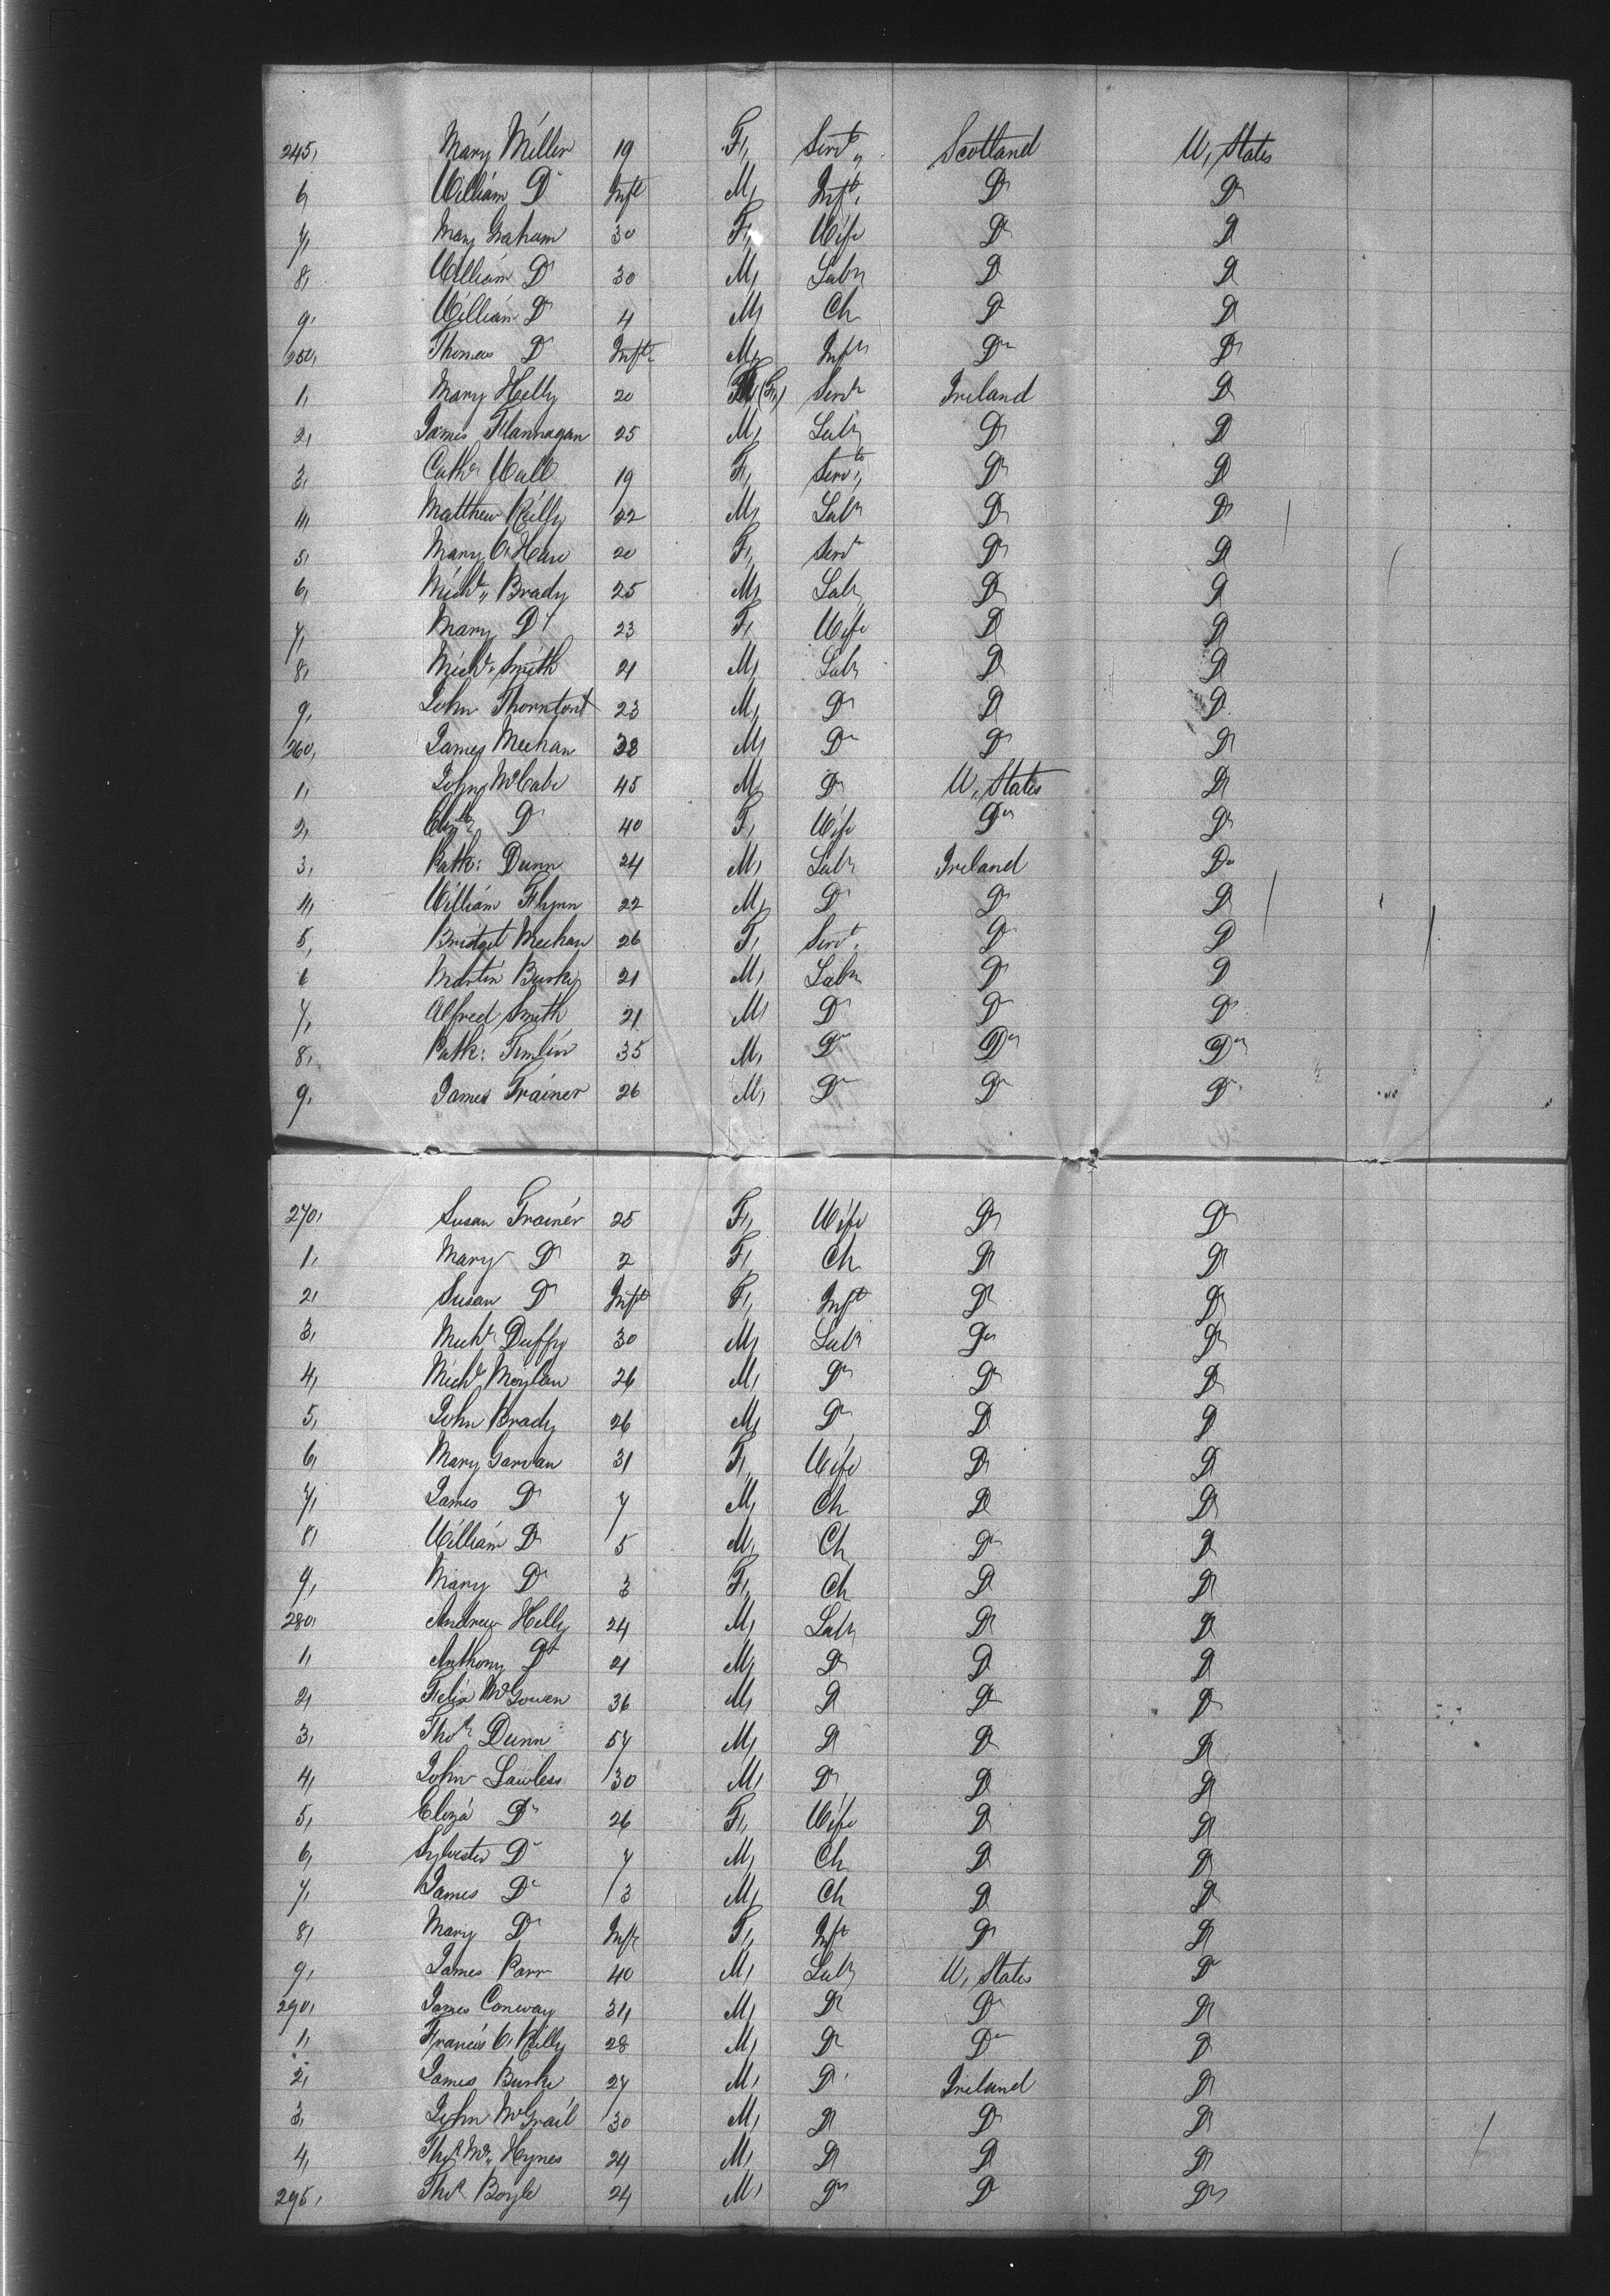 245, Mary Miller 19 F, Servt, Scotland U, States
6, William Do Inft M, Inft, Do Do
7, Mary Graham 30 F, Wife Do Do
8, William Do 30 M, Labr Do Do
9, William Do 4 M, Ch Do Do
250, Thomas Do Inft M, Inft Do Do
1, Mary Kelly 20 F, (F,) Servt Ireland Do
2, James Flannagan 25 M, Labr Do Do
3, Cathr Wall 19 F, Servt, Do Do
4, Matthew Reilly 22 M, Labr Do Do
5, Mary O'Hare 20 F, Servt Do Do
6, Michl, Brady 25 M, Labr Do Do
7, Mary Do 23 F, Wife Do Do
8, Michl, Smith 21 M, Labr Do Do
9, John Thornton 23 M, Do Do Do
260, James Meehan 38 M, Do Do Do
1, John McCabe 45 M, Do U, States Do
2, Do 40 F, Wife Do Do
3, Patk: Dunn 24 M, Labr Ireland Do
4, William Flynn 22 M, Do Do Do
5, Bridget Meehan 26 F, Servt, Do Do
6 Martin Burke 21 M, Labr Do Do
7, Alfred Smith 21 M, Do Do Do
8, Patk: Timlin 35 M, Do Do Do
9, James Trainer 26 M, Do Do Do
270, Susan Trainer 25 F, Wife Do Do
1, Mary Do 2 F, Ch Do Do
2, Susan Do Inft F, Inft Do Do
3, Michl Duffy 30 M, Labr Do Do
4, Michl Moylan 26 M, Do Do Do
5, John Brady 26 M, Do Do Do
6, Mary Garvan 31 F, Wife Do Do
7, James Do 7 M, Ch Do Do
8, William Do 5 M, Ch Do Do
9, Mary Do 3 F, Ch Do Do
280, Andrew Kelly 24 M, Labr Do Do
1, Anthony Do 21 M, Do Do Do
2, Felix McGowen 36 M, Do Do Do
3, Thos Dunn 57 M, Do Do Do
4, John Lawless 30 M, Do Do Do
5, Eliza Do 26 F, Wife Do Do
6, Sylvester Do 7 M, Ch Do Do
7, James Do 3 M, Ch Do Do
8, Mary Do Inft F, Inft Do Do
9, James Parr 40 M, Labr U, States Do
290, James Conway 34 M, Do Do Do
1, Francis O, Reilly 28 M, Do Do Do
2, James Burke 27 M, Do Ireland Do
3, John McGrail 30 M, Do Do Do
4, Thos Mc, Hynes 24 M, Do Do Do
295, Thos Boyle 24 M, Do Do Do